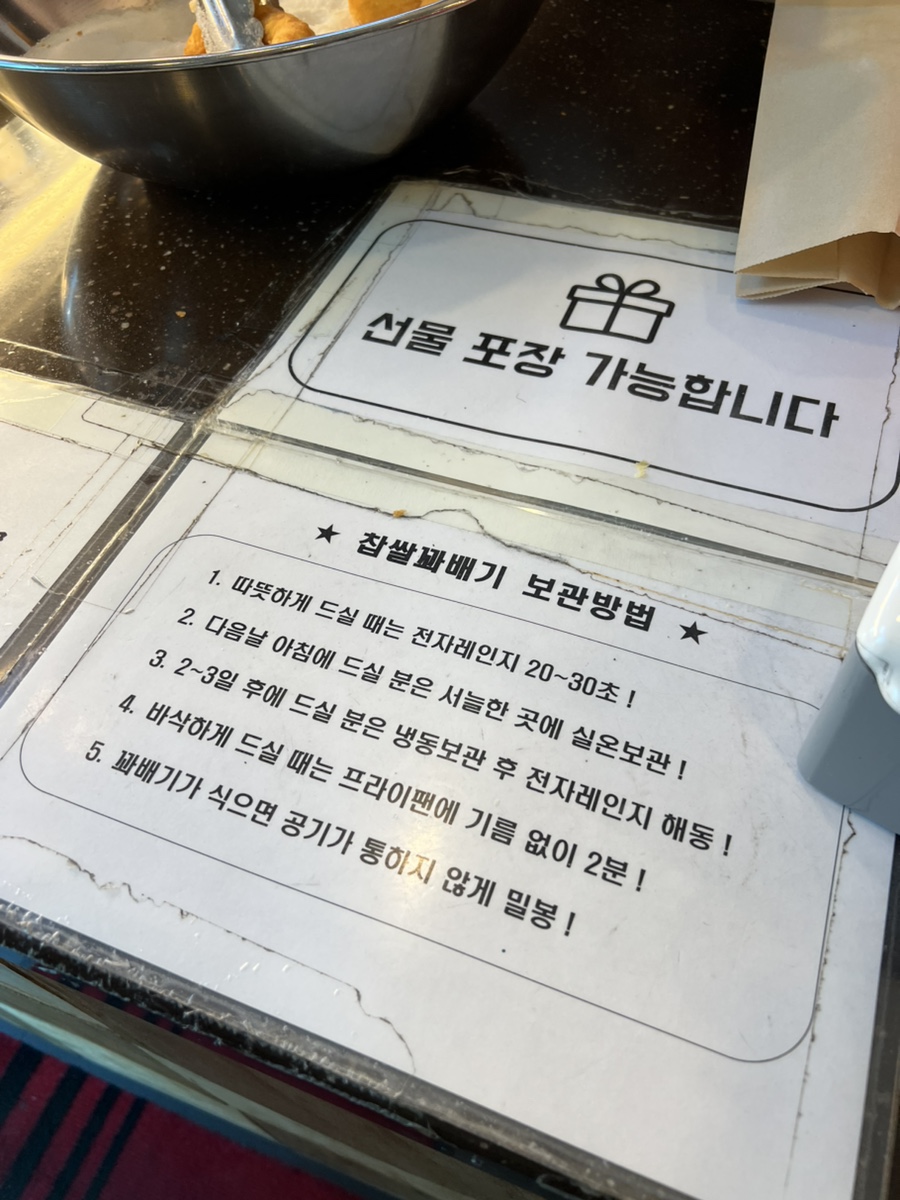 선물 포장 가능합니다
★ 찹쌀꽈배기 보관방법 ★
1. 따뜻하게 드실 때는 전자레인지 20~30초 !
2. 다음날 아침에 드실 분은 서늘한 곳에 실온보관 !
3. 2~3일 후에 드실 분은 냉동보관 후 전자레인지 해동 !
4. 바삭하게 드실 때는 프라이팬에 기름 없이 2분 !
5. 꽈배기가 식으면 공기가 통하지 않게 밀봉 !